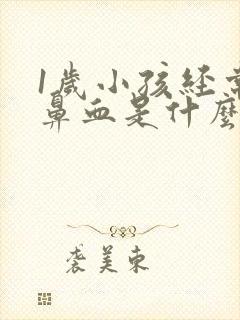 1歲小孩經常
鼻血是什麼
袭美東